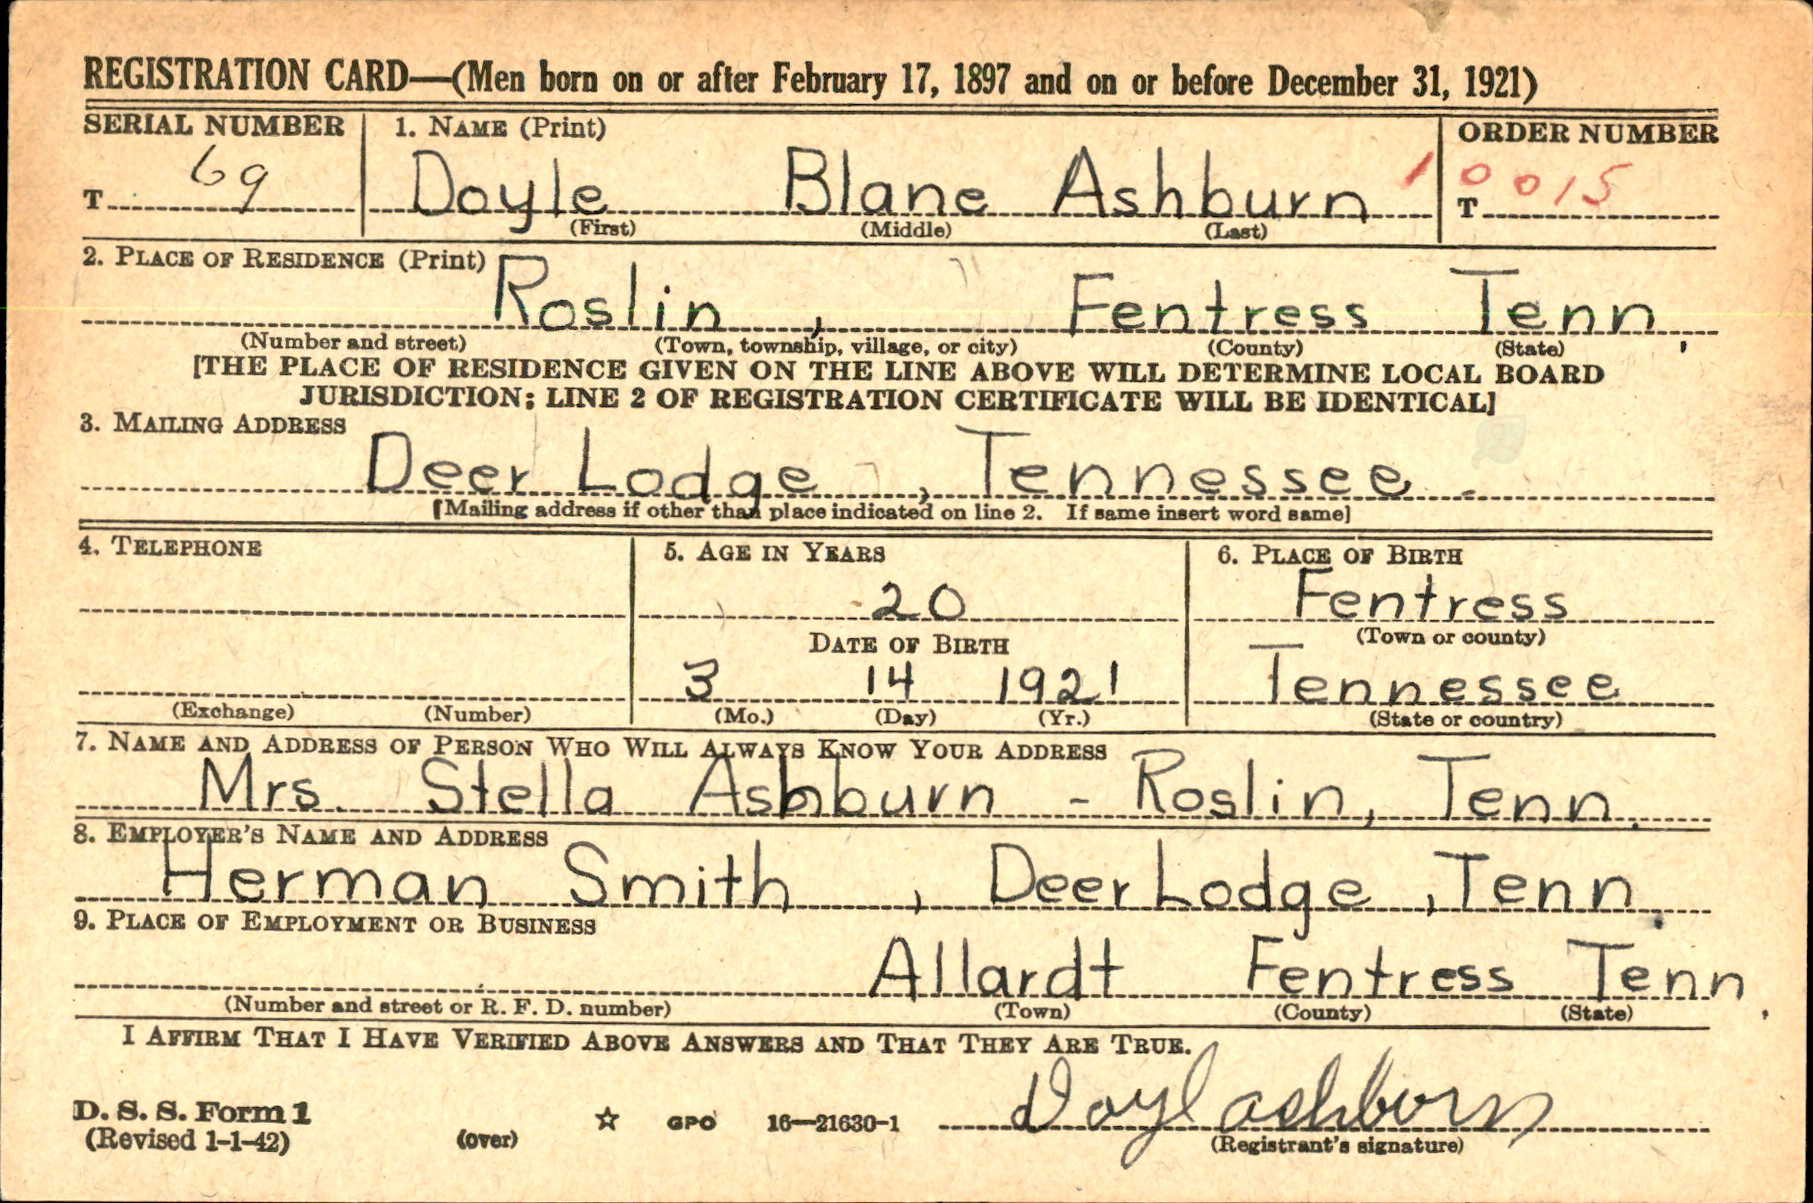 REGISTRATION CARD—(Men born on or after February 17, 1897 and on or before December 31, 1921)
SERIAL NUMBER 1. NAME (Print) ORDER NUMBER
T 69 Doyle Blane Ashburn T 10015
(First) (Middle) (Last)
2. PLACE OF RESIDENCE (Print)
Roslin, Fentress Tenn.
(Number and street) (Town, township, village, or city) (County) (State)
[THE PLACE OF RESIDENCE GIVEN ON THE LINE ABOVE WILL DETERMINE LOCAL BOARD
JURISDICTION; LINE 2 OF REGISTRATION CERTIFICATE WILL BE IDENTICAL]
3. MAILING ADDRESS
Deer Lodge, Tennessee
[Mailing address if other than place indicated on line 2. If same insert word same]
4. TELEPHONE 5. AGE IN YEARS 6. PLACE OF BIRTH
20 Fentress
DATE OF BIRTH (Town or county)
3 14 1921 Tennessee
(Exchange) (Number) (Mo.) (Day) (Yr.) (State or country)
7. NAME AND ADDRESS OF PERSON WHO WILL ALWAYS KNOW YOUR ADDRESS
Mrs. Stella Ashburn - Roslin, Tenn.
8. EMPLOYER'S NAME AND ADDRESS
Herman Smith, Deer Lodge, Tenn.
9. PLACE OF EMPLOYMENT OR BUSINESS
Allardt Fentress Tenn.
(Number and street or R. F. D. number) (Town) (County) (State)
I AFFIRM THAT I HAVE VERIFIED ABOVE ANSWERS AND THAT THEY ARE TRUE.
D. S. S. Form 1 Doyl ashburn
(Revised 1-1-42) (over) ☆ GPO 16—21630-1 (Registrant's signature)